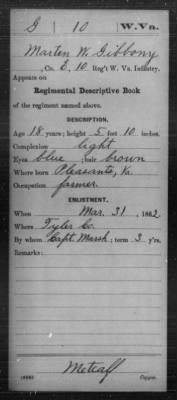 G | 10 | W. Va.
Marten W. Gibbony
, Co. E, 10 Reg't W. Va. Infantry.
Appears on
Regimental Descriptive Book
of the regiment named above.
DESCRIPTION.
Age 18 years; height 5 feet 10 inches.
Complexion light
Eyes blue; hair brown
Where born Pleasants, Va.
Occupation farmer.
ENLISTMENT.
When Mar. 31, 1862
Where Tyler Co.
By whom Capt. Marsh; term 3 y'rs.
Remarks:
Metcalf
Copyist.